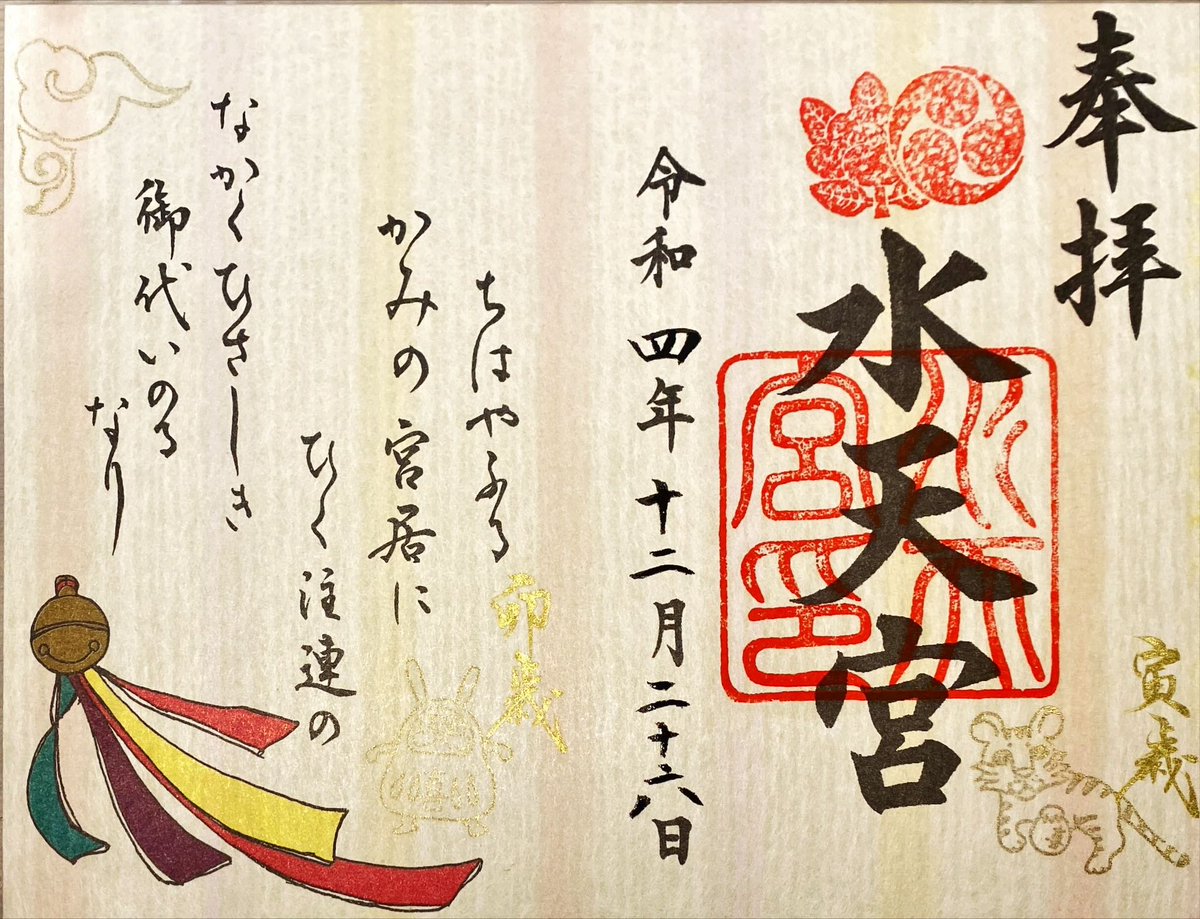 奉拝
水天宮
宮印
水天
令和四年十二月二十六日
寅歳
卯歳
ちはやふる
かみの宮居に
ひく注連の
なかくひさしき
御代いのる
なり